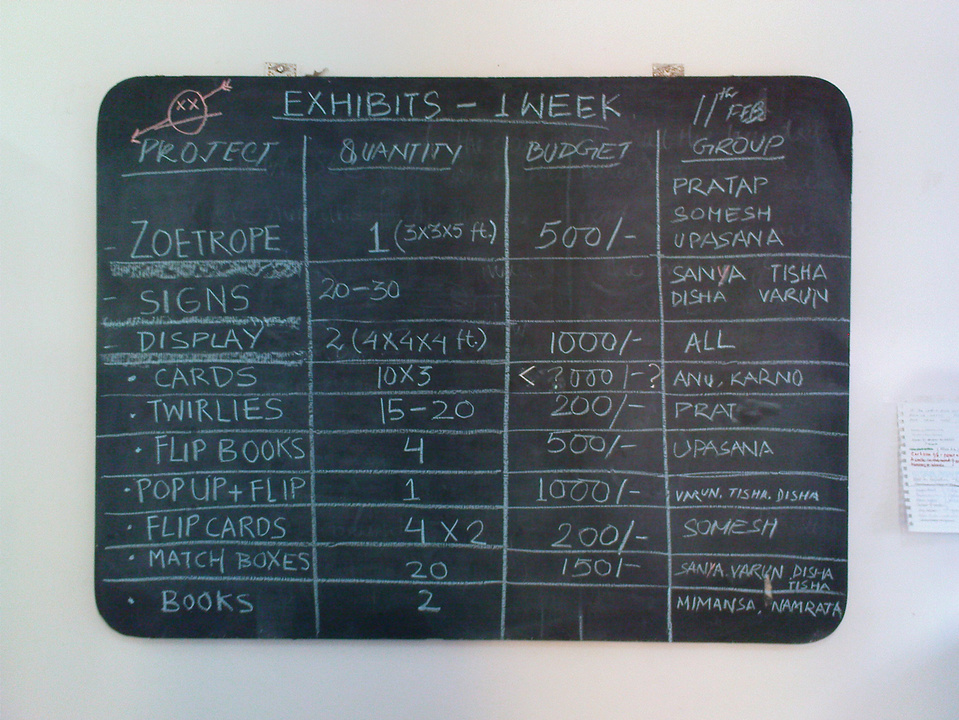 EXHIBITS - 1 WEEK
11th FEB
PROJECT QUANTITY BUDGET GROUP
PRATAP
SOMESH
- ZOETROPE 1 (3x3x5 ft.) 500/- UPASANA
SANYA TISHA
- SIGNS 20-30 DISHA VARUN
- DISPLAY 2 (4x4x4 ft.) 1000/- ALL
• CARDS 10x3 < ?000/-? ANU, KARNO
• TWIRLIES 15-20 200/- PRAT
• FLIP BOOKS 4 500/- UPASANA
• POP UP + FLIP 1 1000/- VARUN. TISHA. DISHA
• FLIP CARDS 4 X 2 200/- SOMESH
• MATCH BOXES 20 150/- SANYA. VARUN. DISHA
TISHA
• BOOKS 2 MIMANSA, NAMRATA